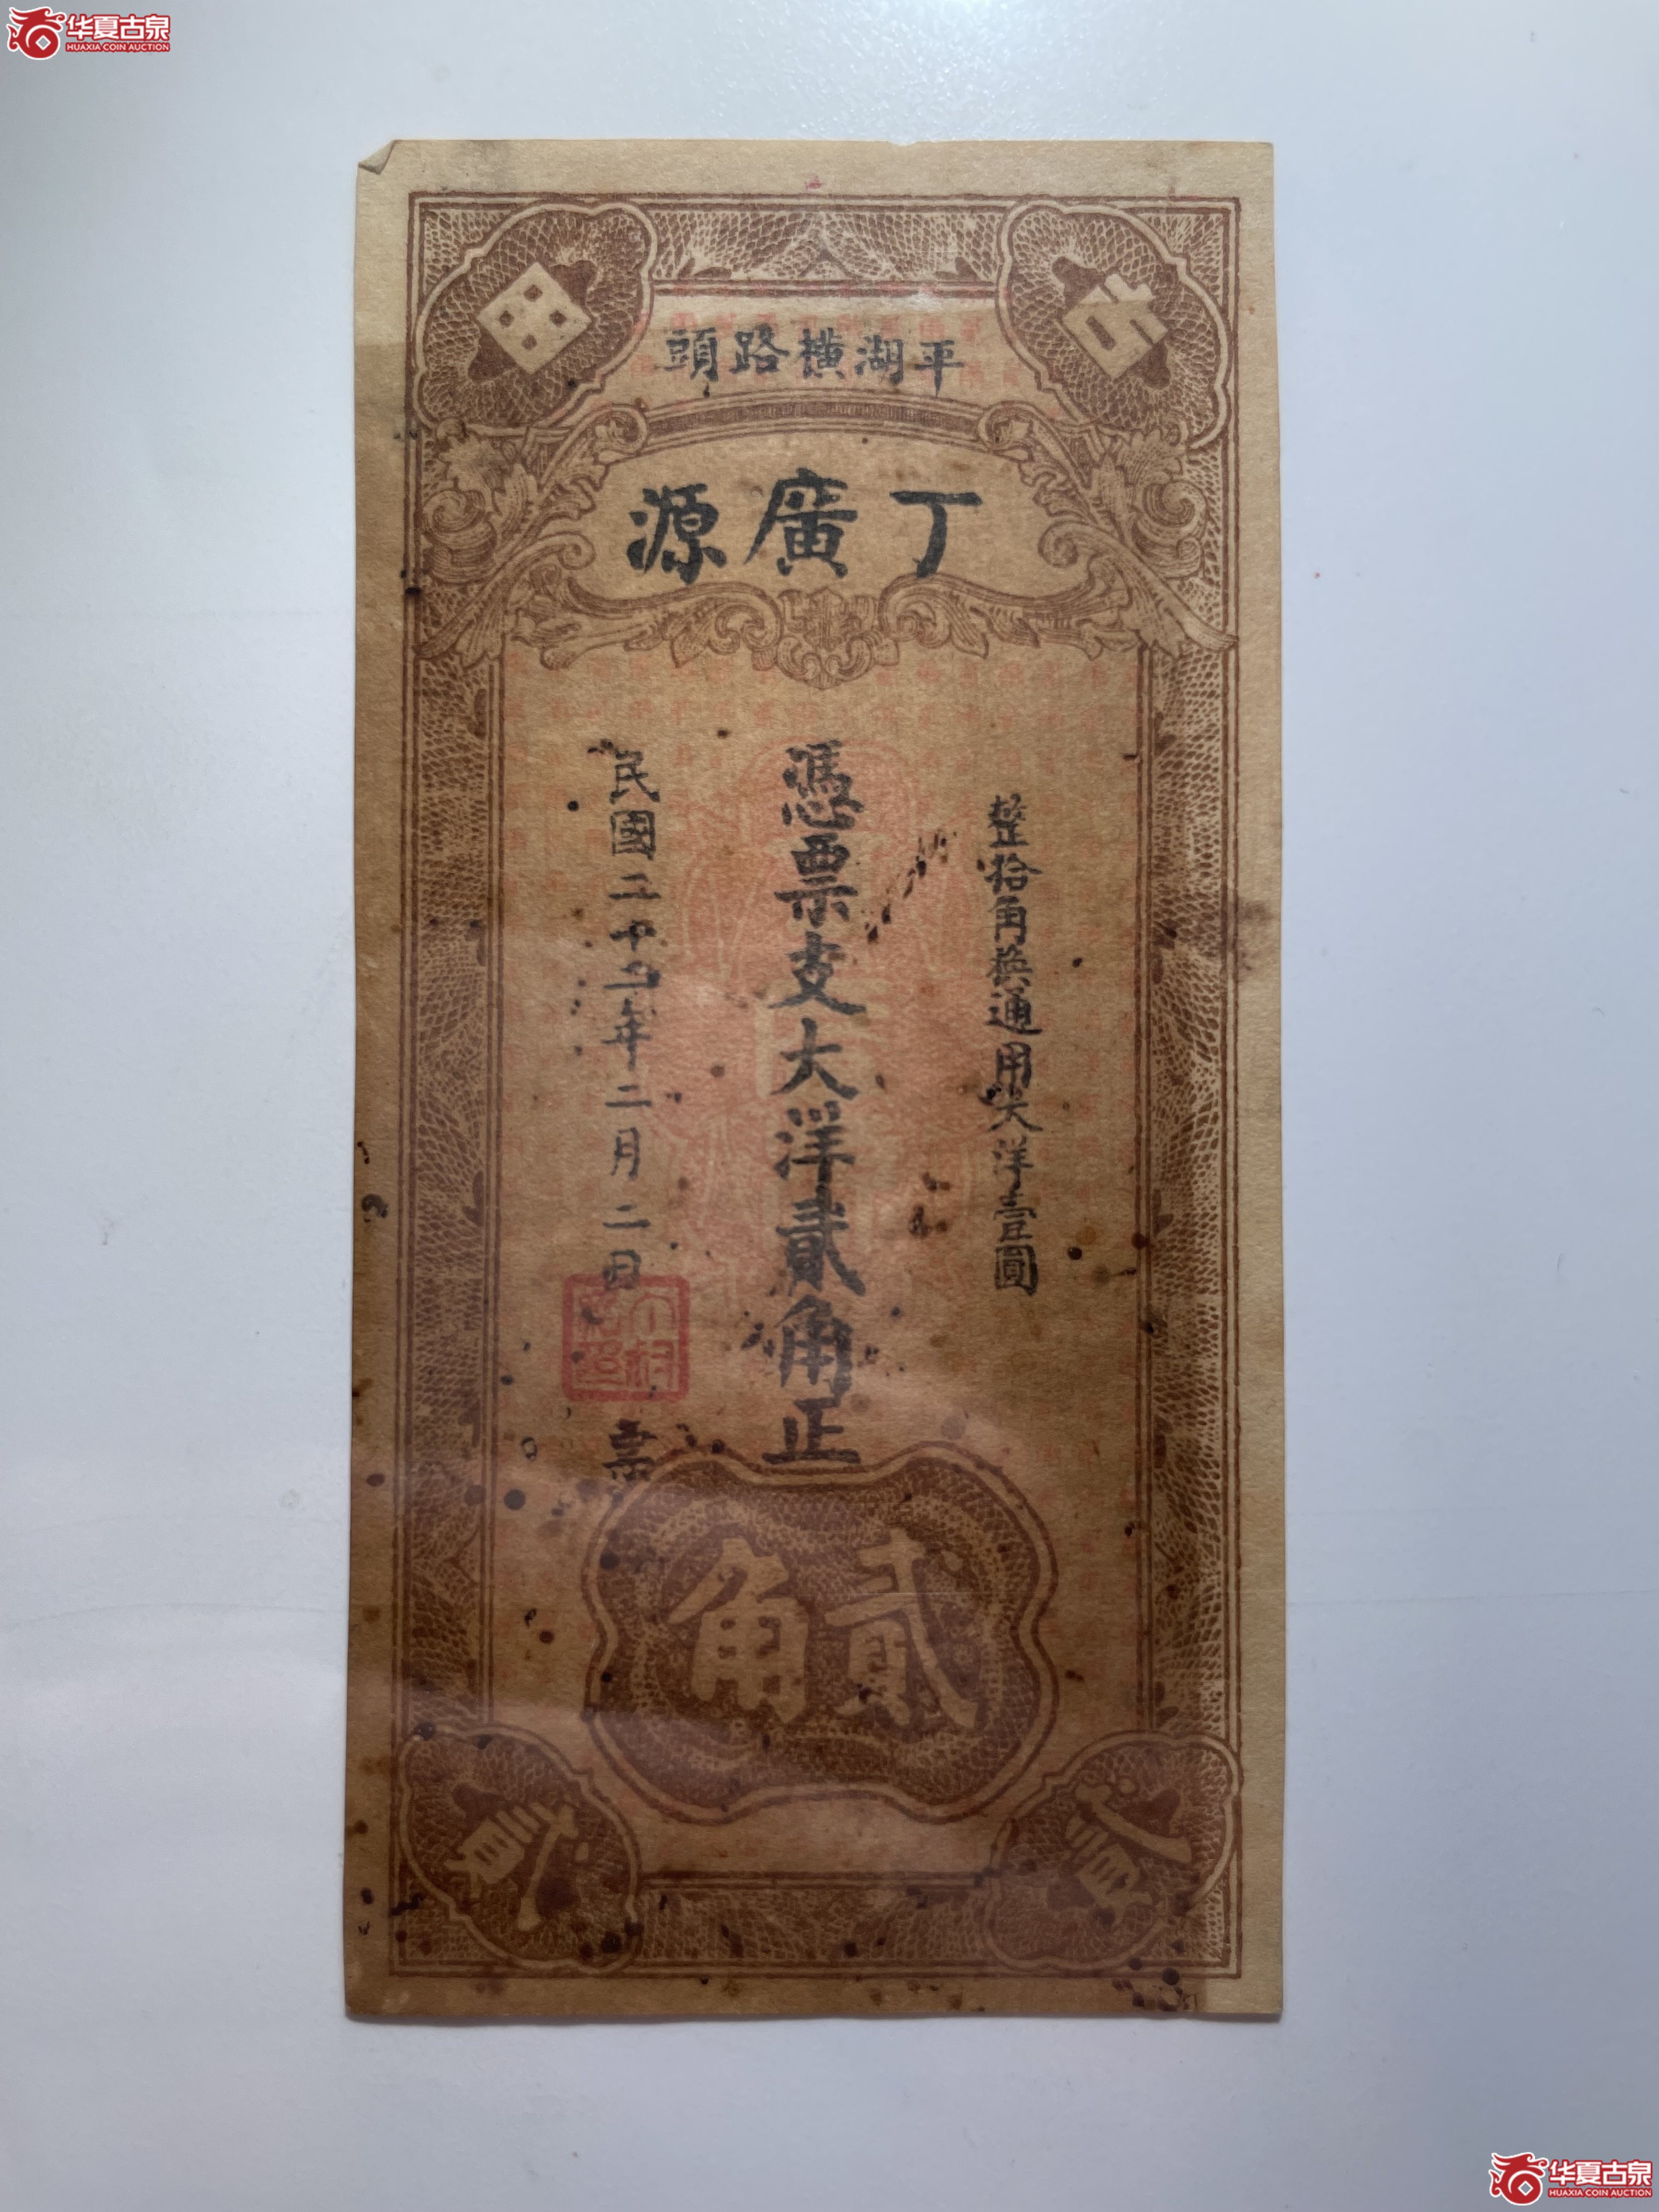 华夏古泉
HUAXIA COIN AUCTION
平湖橫路頭
丁廣源
整拾角換通用大洋壹圓
憑票支大洋貳角正
民國二十二年二月二日
貳角
貳
貳
华夏古泉
HUAXIA COIN AUCTION